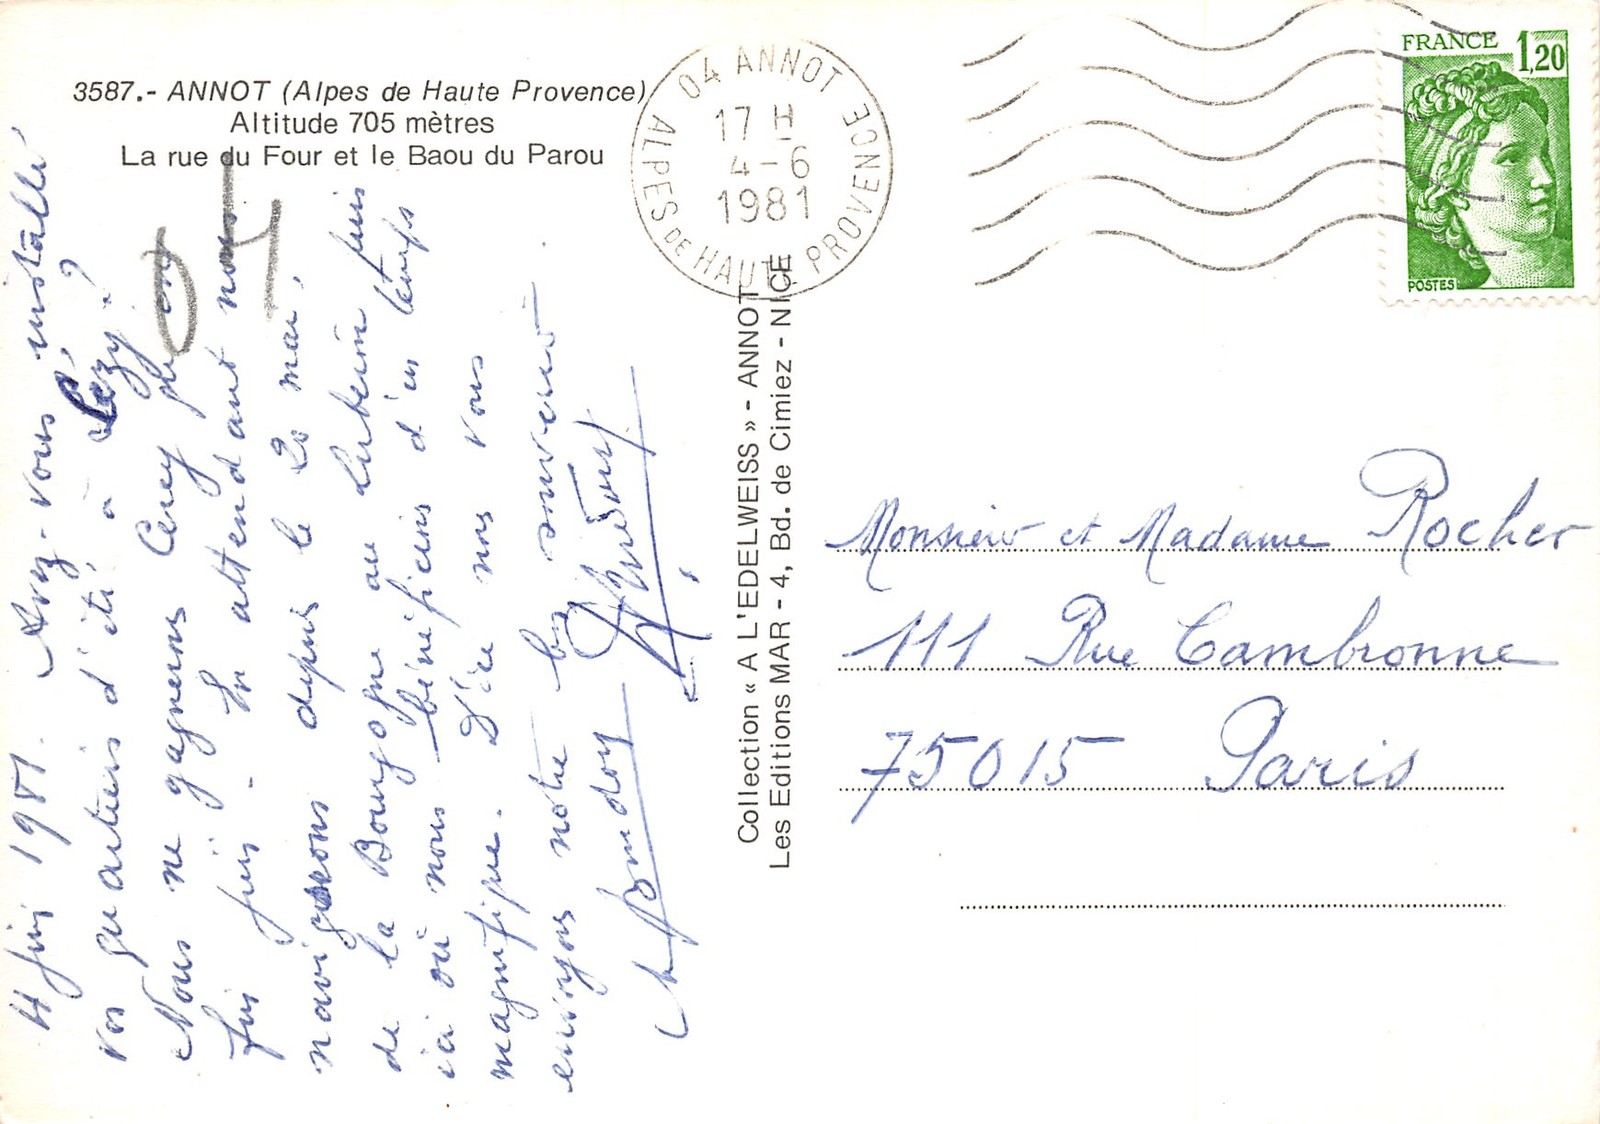 3587.- ANNOT (Alpes de Haute Provence)
Altitude 705 mètres
La rue du Four et le Baou du Parou
04 ANNOT
17 H
4-6
1981
ALPES DE HAUTE PROVENCE
FRANCE 1,20
POSTES
4 juin 1981. Avez-vous installé
vos quartiers d'été à Lézy?
Nous ne gagnerons Cerey qu'en
fin juin - En attendant nous
navigeons depuis le 20 mai,
de la Bourgogne au Lubéron puis
ici où nous bénéficions d'un temps
magnifique. D'ici nous vous
envoyons notre bon souvenir
Collection « A L'EDELWEISS » - ANNOT
Les Editions MAR - 4, Bd. de Cimiez - NICE
Monsieur et Madame Rocher
111 Rue Cambronne
75015 Paris